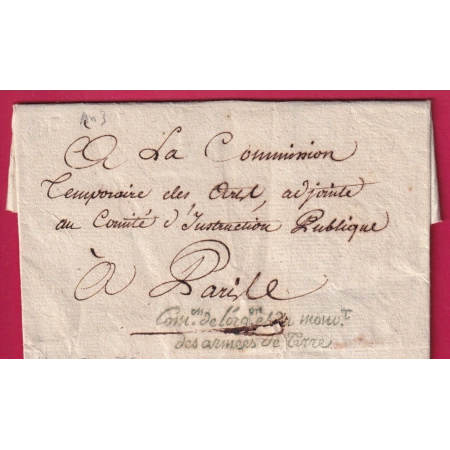 An 3
A La Commission
Temporaire des Arts, adjointe
au Comité d'Instruction Publique
à Paris
Com.on de l'org.on et du mouv.t
des armées de Terre